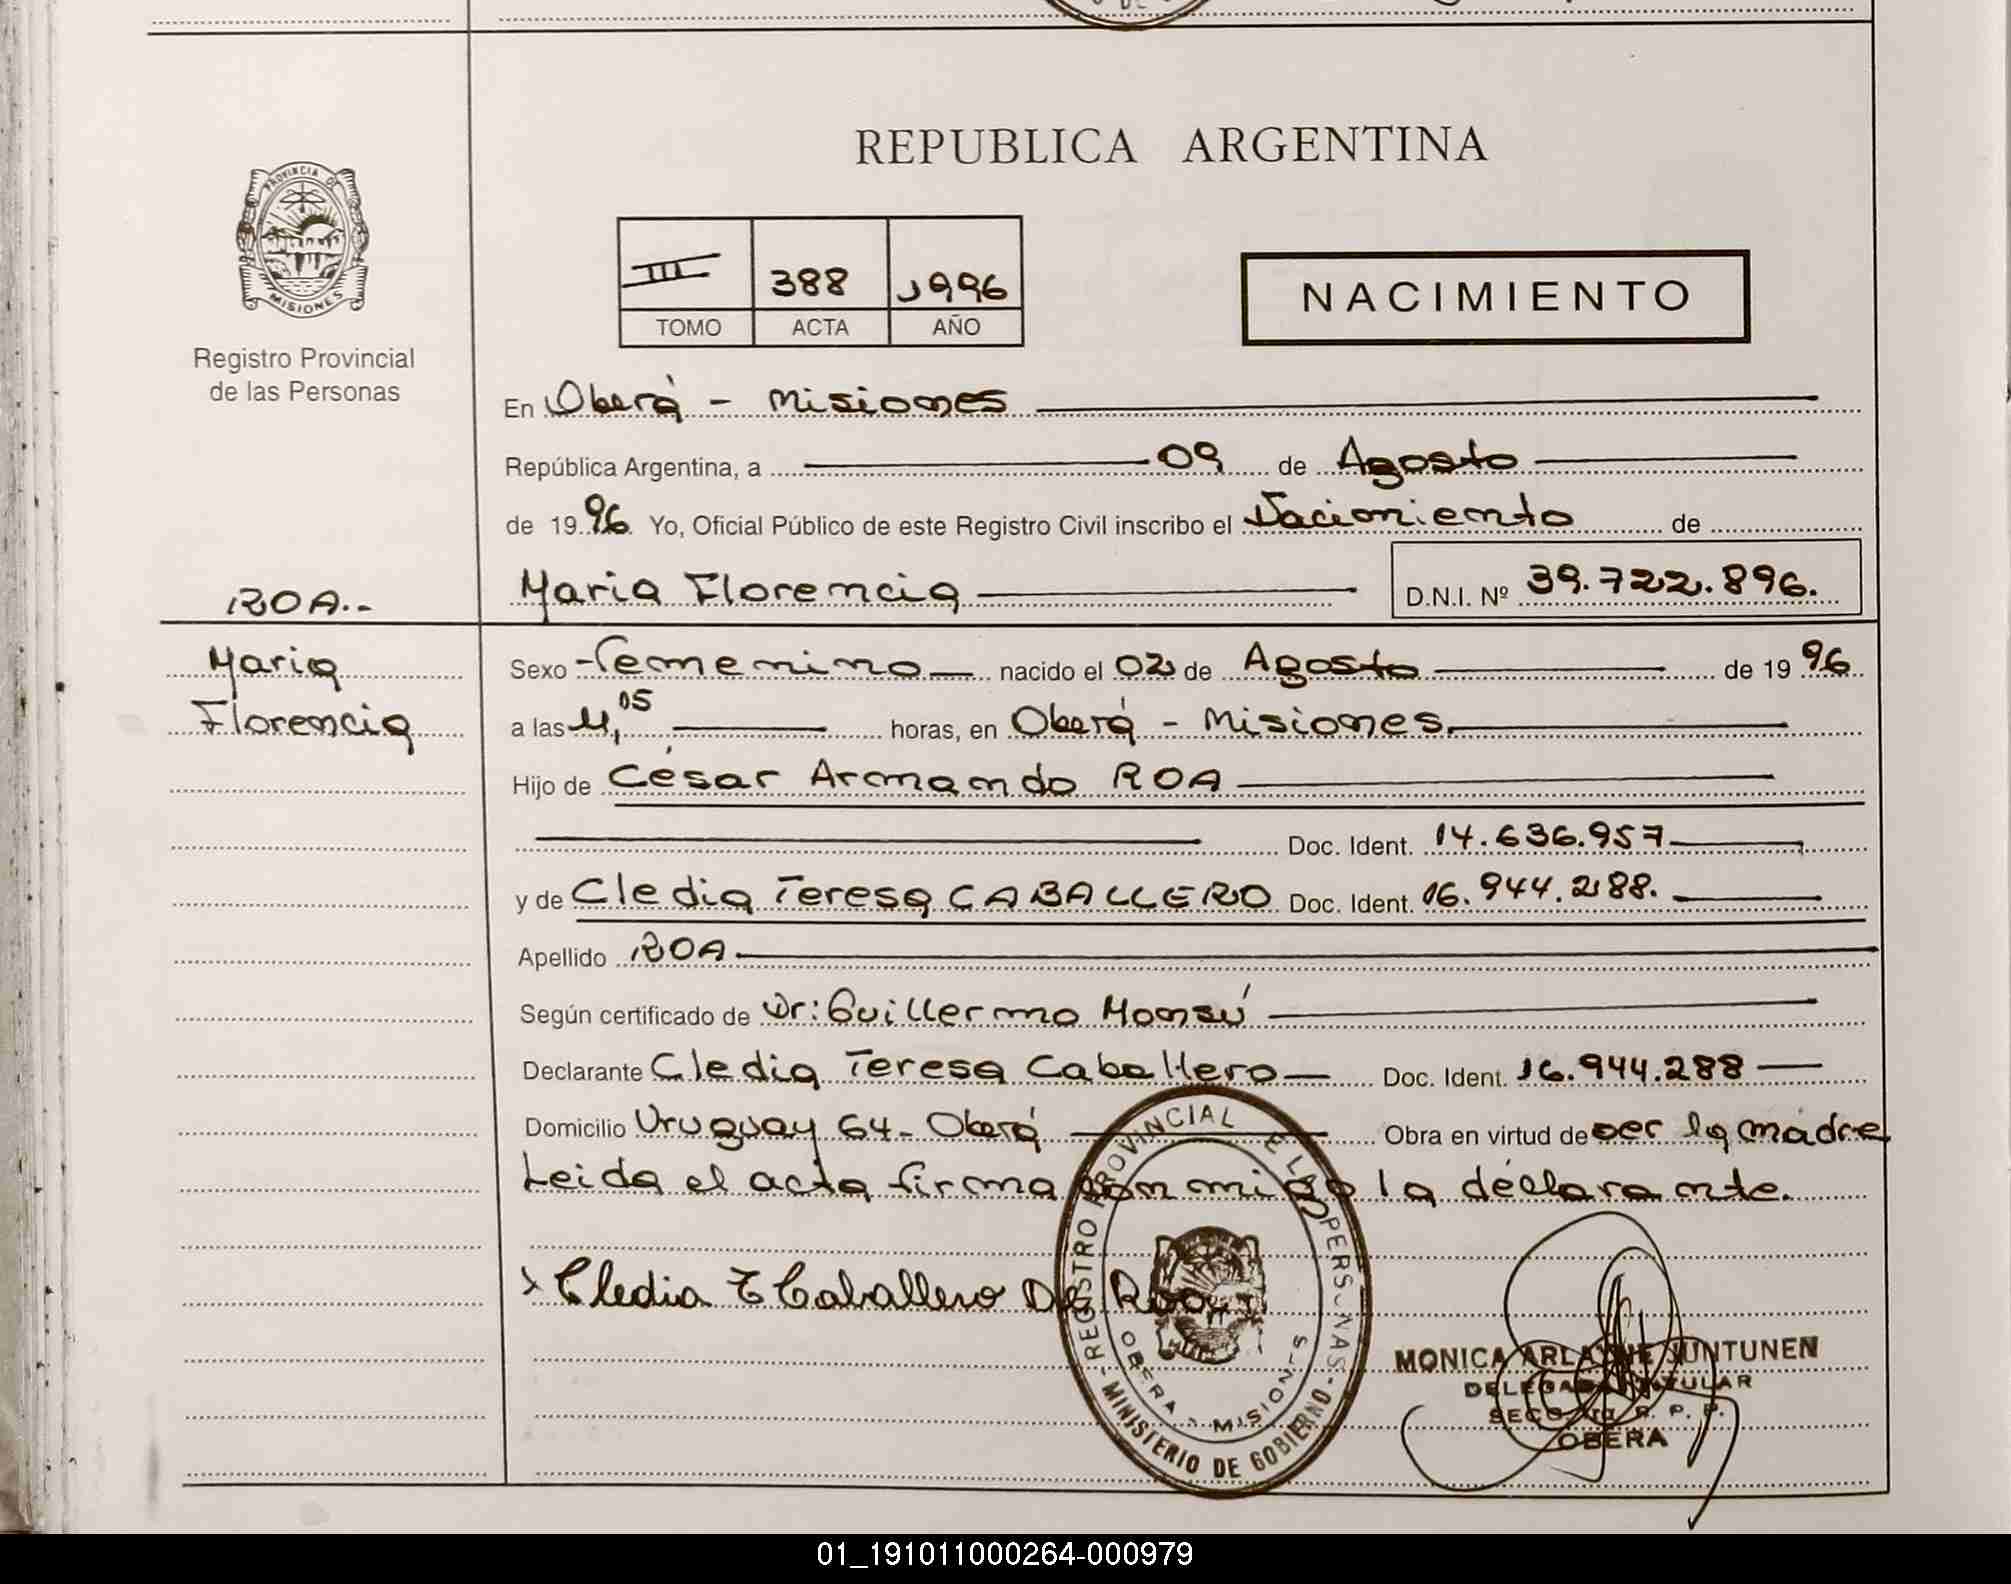 REPUBLICA ARGENTINA
PROVINCIA DE
MISIONES
Registro Provincial
de las Personas
III 388 1996
TOMO ACTA AÑO
NACIMIENTO
En Oberá - Misiones
República Argentina, a 09 de Agosto
de 1996 Yo, Oficial Público de este Registro Civil inscribo el Nacimiento de
Maria Florencia D.N.I. Nº 39.722.896.
ROA.-
Maria
Florencia
Sexo Femenino nacido el 02 de Agosto de 1996
a las 11,05 horas, en Oberá - Misiones.
Hijo de César Armando ROA
Doc. Ident. 14.636.957
y de Cledia Teresa CABALLERO Doc. Ident. 16.944.288.
Apellido ROA
Según certificado de Dr: Guillermo Monsú
Declarante Cledia Teresa Caballero Doc. Ident. 16.944.288
Domicilio Uruguay 64 - Oberá Obra en virtud de ser la madre
Leida el acta firma conmigo la declarante.
x Cledia T Caballero De Roa
REGISTRO PROVINCIAL DE LAS PERSONAS
OBERA - MISIONES
MINISTERIO DE GOBIERNO
MONICA ARLAYNE JUNTUNEN
DELEGADA TITULAR
R. P. P.
OBERA
01_191011000264-000979